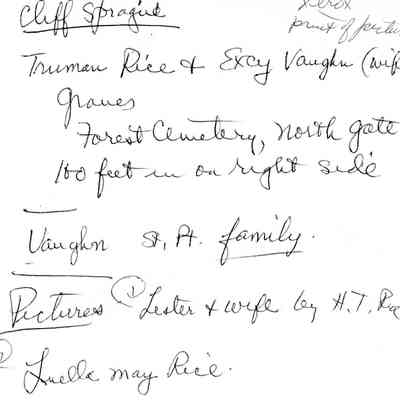 Cliff Sprague
Xerox
print of pictu
Truman Rice & Excy Vaughn (wif
graves
Forest Cemetery, North gate
100 feet in on right side
Vaughn St. Pt. family.
Pictures ① Lester & wife by H.T. Ric
Luella May Rice.